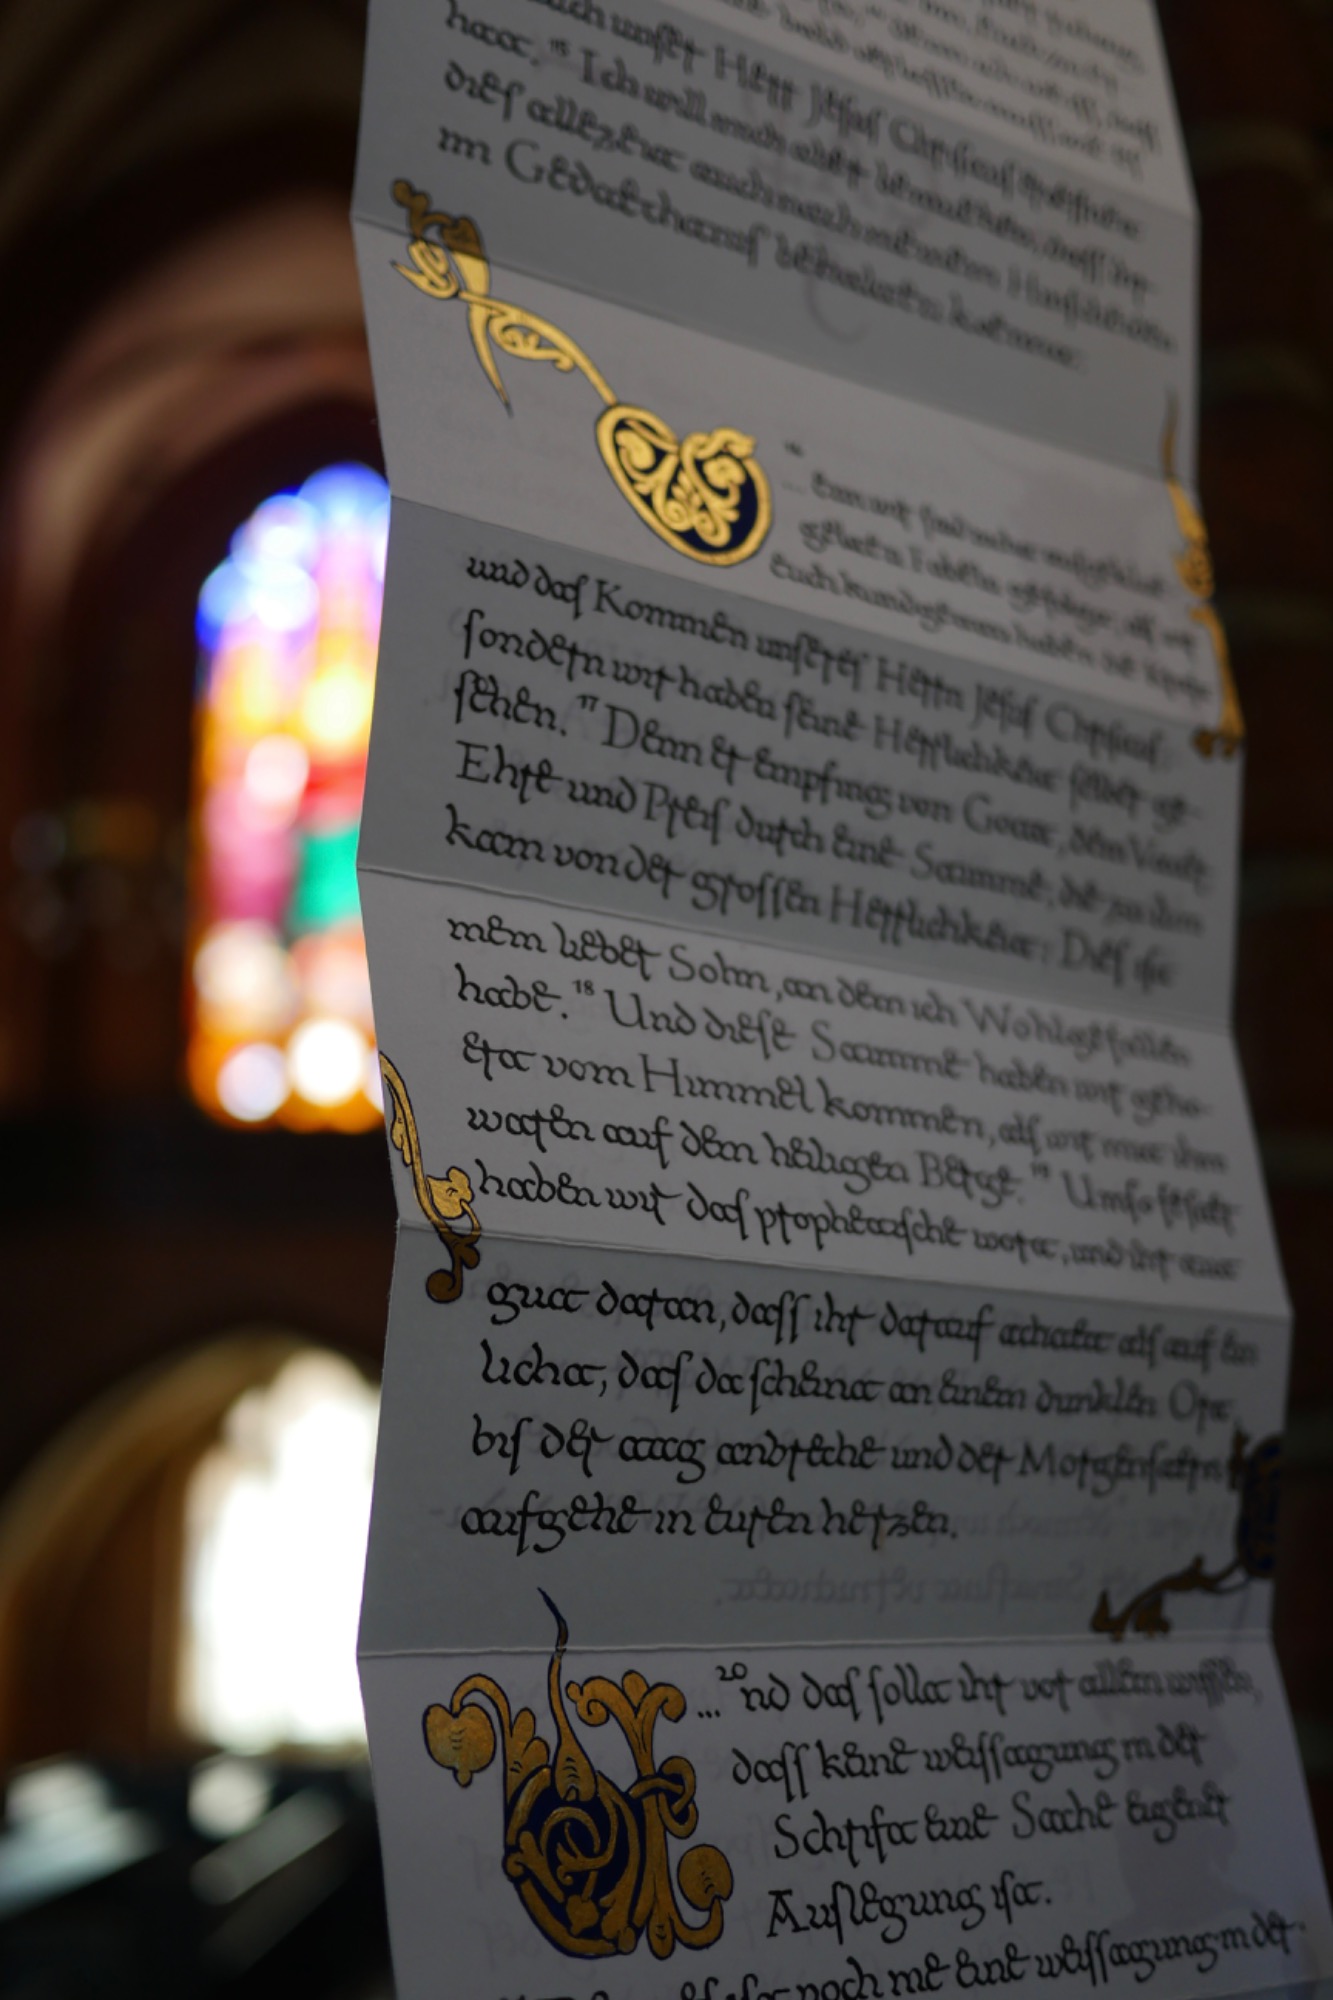 auch unser Herr Jesus Christus eröffnete
hat. 15 Ich will mich aber bemühen, dass ihr
dies allezeit auch nach meinem Hinscheiden
im Gedächtnis behalten könnt.
16 ... enn wir sind nicht ausgeklü-
gelten Fabeln gefolgt, als wir
Euch kundgetan haben die Kraft
und das Kommen unseres Herrn Jesus Christus;
sondern wir haben seine Herrlichkeit selber ge-
sehen. 17 Denn er empfing von Gott, dem Vater,
Ehre und Preis durch eine Stimme, die zu ihm
kam von der grossen Herrlichkeit: Dies ist
mein lieber Sohn, an dem ich Wohlgefallen
habe. 18 Und diese Stimme haben wir gehö-
ert vom Himmel kommen, als wir mit ihm
waren auf dem heiligen Berge. 19 Umso fester
haben wir das prophetische wort, und ihr tut
gut daran, dass ihr darauf achtet als auf ein
licht, das da scheint an einem dunklen Ort,
bis der tag anbreche und der Morgenstern
aufgehe in euren herzen.
... 20 nd das sollt ihr vor allem wissen,
dass keine weissagung in der
Schrift eine Sache eigener
Auslegung ist.
noch nie eine weissagung in der